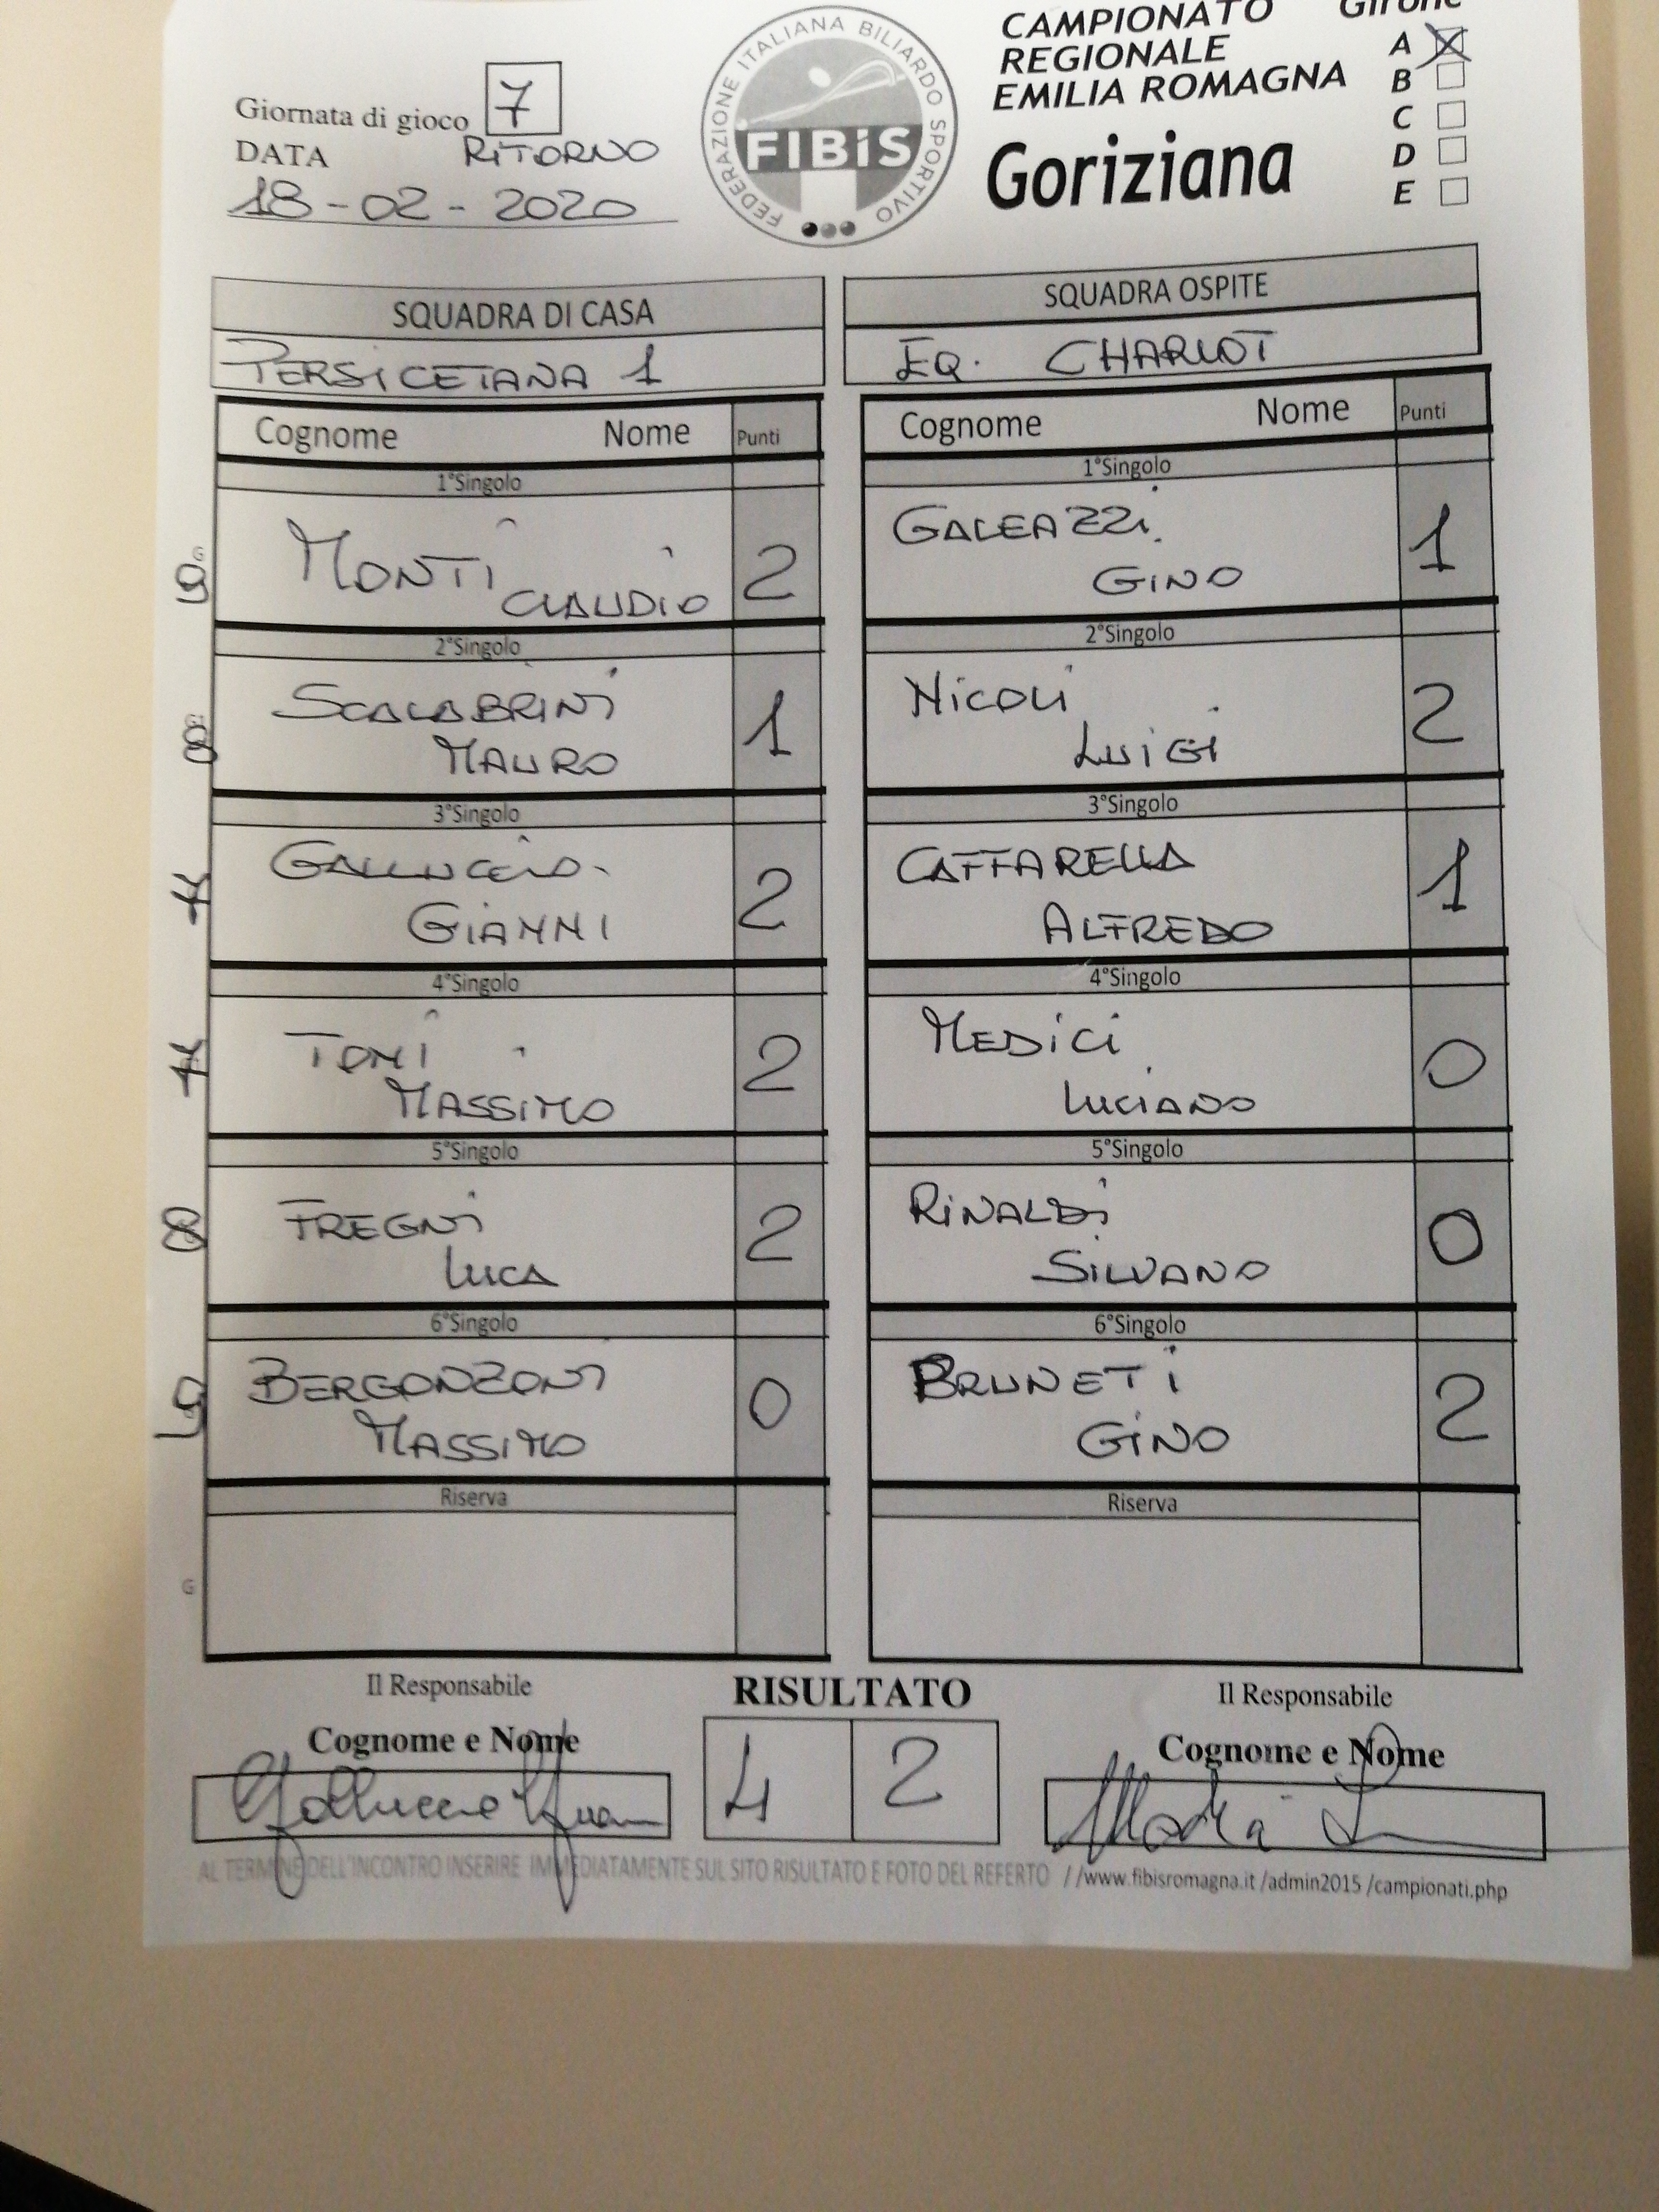 CAMPIONATO
REGIONALE
EMILIA ROMAGNA
Goriziana
Girone
A
B
C
D
E
FEDERAZIONE ITALIANA BILIARDO SPORTIVO
FIBiS
Giornata di gioco 7
DATA RITORNO
18-02-2020
SQUADRA DI CASA
PERSICETANA 1
SQUADRA OSPITE
EQ. CHARLOT
Cognome Nome Punti
Cognome Nome Punti
1°Singolo
G
9
MONTI
CLAUDIO 2
1°Singolo
GALEAZZI
GINO 1
2°Singolo
8
SCALABRINI
MAURO 1
2°Singolo
NICOLI
LUIGI 2
3°Singolo
GIANNI 2
3°Singolo
CAFFARELLA
ALFREDO 1
4°Singolo
TONI
MASSIMO 2
4°Singolo
MEDICI
LUCIANO 0
5°Singolo
8
FREGNI
LUCA 2
5°Singolo
RINALDI
SILVANO 0
6°Singolo
BERGONZONI
MASSIMO 0
6°Singolo
BRUNETI
GINO 2
Riserva
G
Riserva
Il Responsabile
Cognome e Nome
RISULTATO
4 2
Il Responsabile
Cognome e Nome
AL TERMINE DELL'INCONTRO INSERIRE IMMEDIATAMENTE SUL SITO RISULTATO E FOTO DEL REFERTO //www.fibisromagna.it /admin2015 /campionati.php